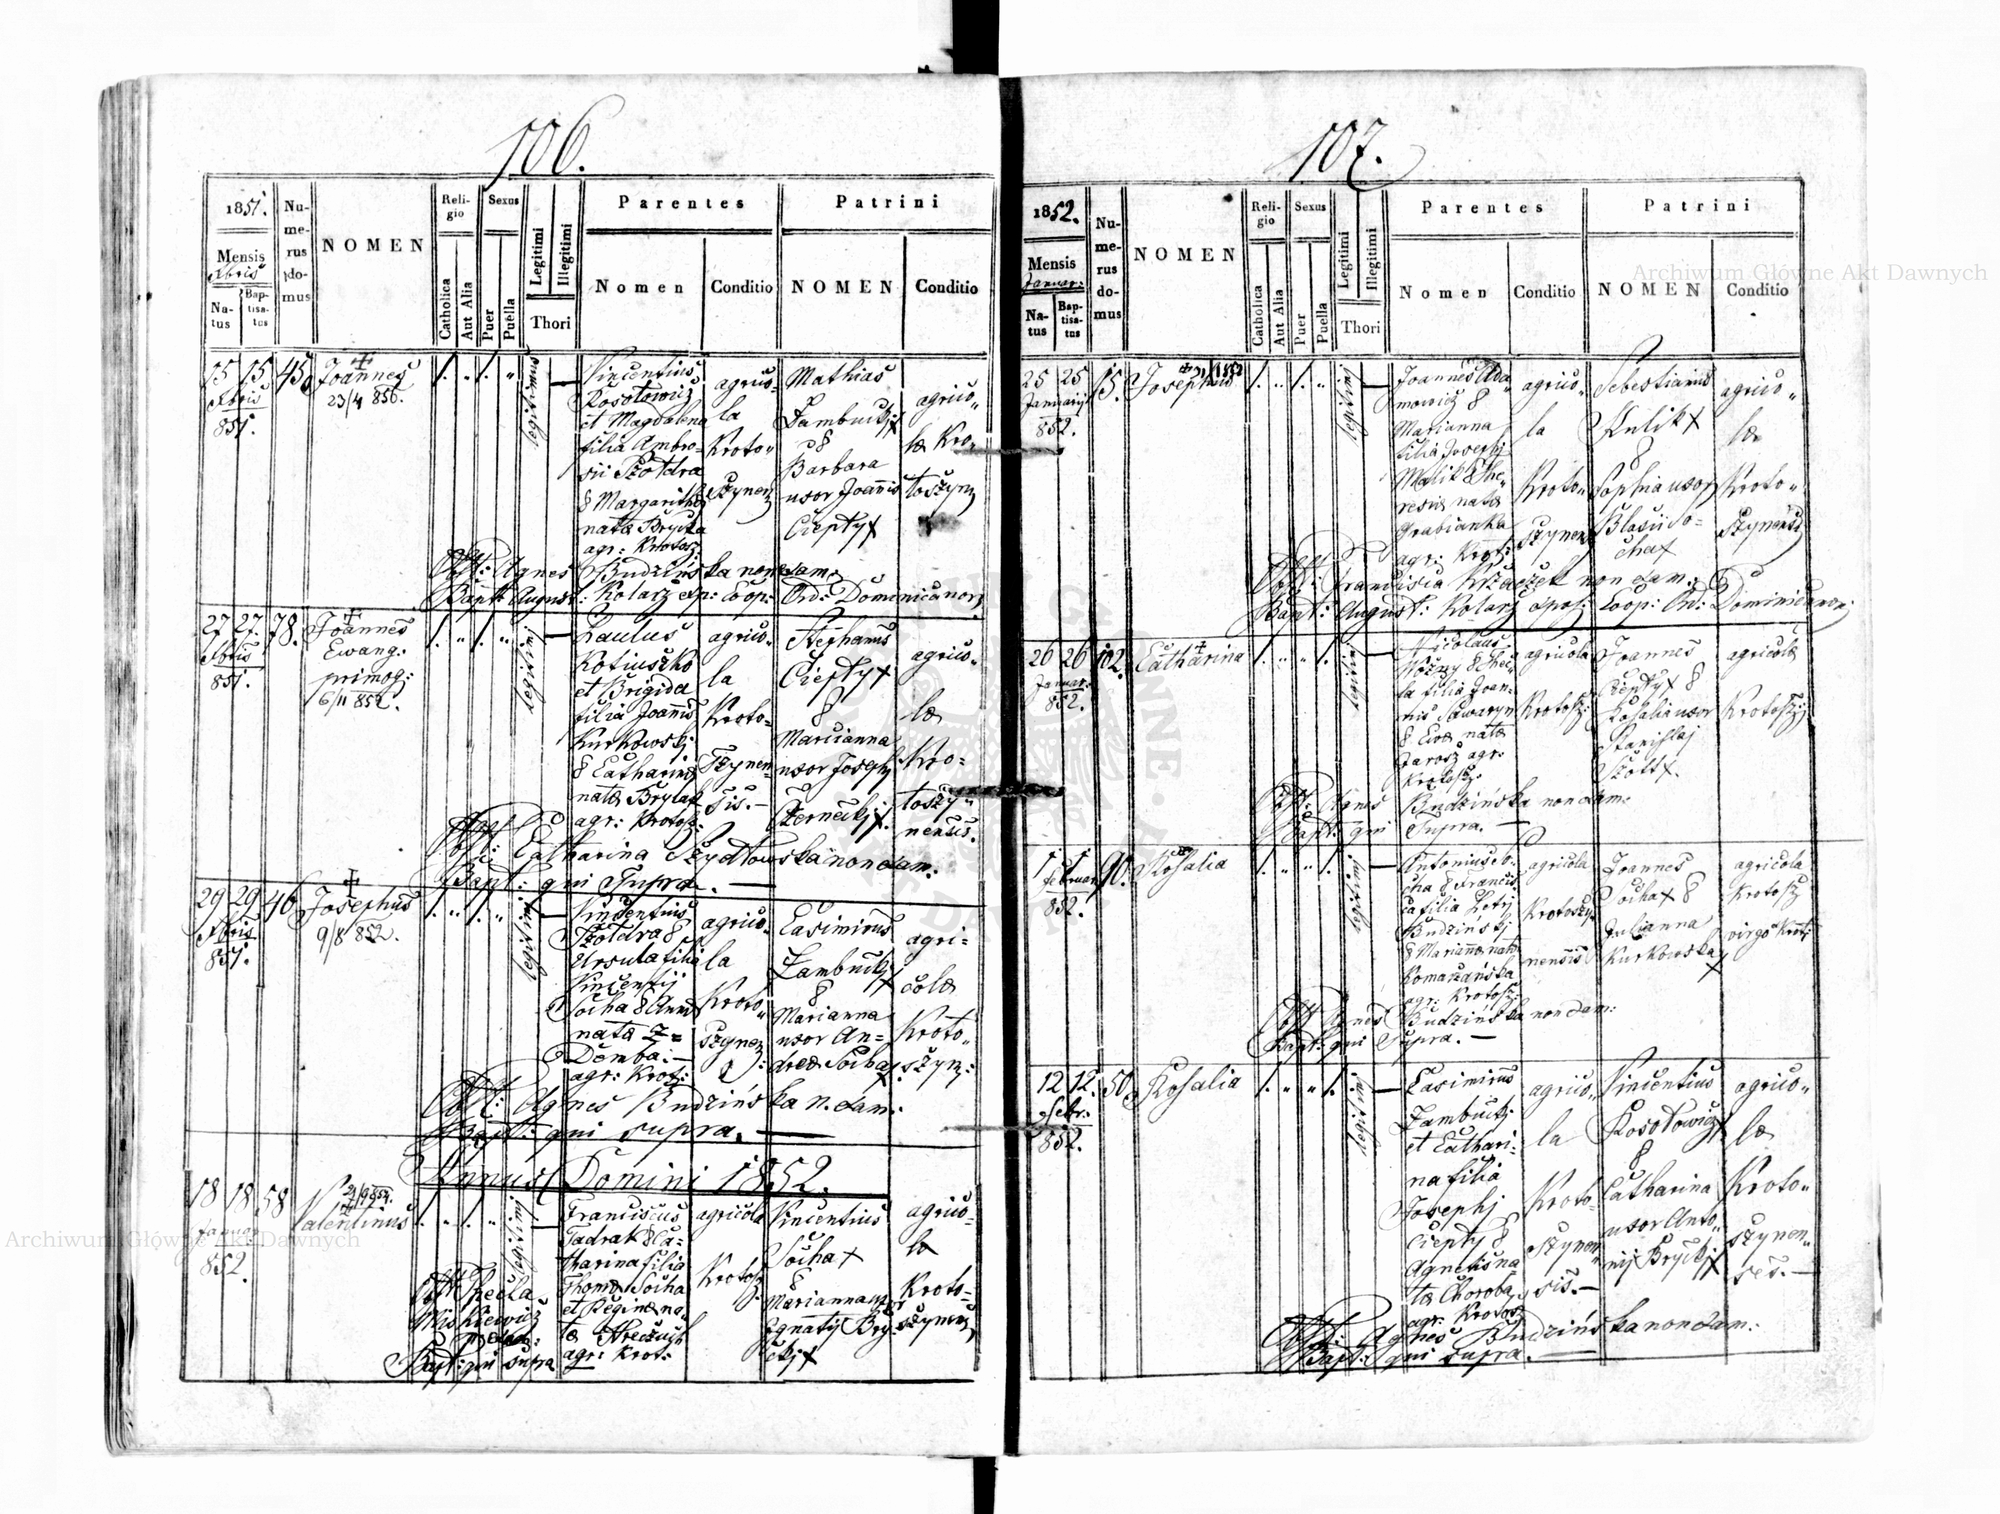 106.
1851.
Mensis
Xbris
Na-
tus
Bap-
tisa-
tus
Nu-
me-
rus
do-
mus
NOMEN
Reli-
gio
Catholica
Aut Alia
Sexus
Puer
Puella
Legitimi
Illegitimi
Thori
Parentes
Nomen
Conditio
Patrini
NOMEN
Conditio
15 15 45
Xbris
851.
Joannes
23/4 856.
1. „ 1. „
legitimus
Vincentius
Kosotowicz
et Magdalena
filia Ambro-
sii Szoldra
& Margarithæ
natæ Brycka
agr: Krotosz:
agrico-
la
Kroto-
szynen
Mathias
Zambuckj x
&
Barbara
uxor Joannis
Ciepły x
agrico-
læ Kro-
toszyn
Obst: Agnes Budzińska non exam:
Bapt: August: Kolarz exp: Coop: Ord: Dominicanor:
27 27. 78.
Xbris
851.
Joannes
Ewang:
primog:
6/11 852.
1. „ 1. „
legitimi
Paulus
Kotiuszko
et Brigida
filia Joannis
Kurkowskj
& Catharinæ
natæ Brylak
agr: Krotosz:
agrico-
la
Kroto-
szynen-
sis. —
Stephanus
Ciepły x
&
Marcianna
uxor Josephj
Czerneckj x.
agrico-
læ
Kro-
toszy-
nensis.
Obst: Catharina Szydłowska non exam:
Bapt: qui Supra. —
29 29 46
Xbris
851.
Josephus
9/8 852.
1. „ 1. „
legitimi
Vincentius
Szoldra &
Ursula filia
Vincentij
Socha & Annæ
natæ
Demba: —
agr: Krot:
agrico-
la
Kroto-
szynen
Casimirus
Zambuckj x
&
Marianna
uxor An-
dreæ Socha x
agri-
colæ
Kroto-
szyn:
Obst: Agnes Budzińska n. exam:
Bapt: qui supra. —
Annus Domini 1852.
18 18 58
Januar
852.
Valentinus
1. „ 1. „
legitimi
Franciscus
Tadrak & Ca-
tharina filia
Thomæ Socha
et Reginæ na-
tæ
agr: Krot:
agricola
Krotosz
Vincentius
Socha x
&
Marianna uxor
Ignatij Bry-
ckj x
agrico-
læ
Kroto-
szynens
Obst: Thecla
Miskiewicz
Bapt: qui supra
107.
1852.
Mensis
Januar:
Na-
tus
Bap-
tisa-
tus
Nu-
me-
rus
do-
mus
NOMEN
Reli-
gio
Catholica
Aut Alia
Sexus
Puer
Puella
Legitimi
Illegitimi
Thori
Parentes
Nomen
Conditio
Patrini
NOMEN
Conditio
25 25 15.
Januarij
852.
Josephus
1. „ 1. „
legitimi
Joannes Ada-
mowicz &
Marianna
filia Josephj
Malik & The-
resiæ natæ
Grabianka
agr: Krot:
agrico-
la
Kroto-
szynen
Sebestianus
Kulik x
&
Sophia uxor
Blasii So-
cha x
agrico-
læ
Kroto-
szynensis
Obst: Francisca Krzaczek non exam:
Bapt: August: Kolarz expos: Coop: Ord: Dominicanor:
26 26 102.
Januar.
852.
Catharina
1. „ „ 1.
legitimi
Nicolaus
Woźny & The-
cla filia Joan-
nis Sawaryn
& Evæ natæ
Jarosz agr:
Krotosz:
agricola
Krotosz:
Joannes
Ciepły x &
Rosalia uxor
Stanislaj
Szott x.
agricolæ
Krotosz:
Obst: Agnes Budzińska non exam:
Bapt: qui Supra. —
1 1 90.
Februar
852.
Rosalia
1. „ „ 1.
legitimi
Antonius So-
cha & Francis-
ca filia Petrj
Budzińskj
& Mariannæ natæ
Komarzańska
agr: Krotosz:
agricola
Krotoszy-
nensis
Joannes
Socha x &
Julianna
Kurkowska x
agricola
Krotosz
virgo Krot:
Obst: Agnes Budzińska non exam:
Bapt: qui Supra. —
12 12. 50.
Febr.
852.
Rosalia
1. „ „ 1.
legitimi
Casimirus
Zambuckj
et Cathari-
na filia
Josephj
Ciepły &
Agnetis na-
tæ Choroba,
agr: Krotosz
agrico-
la
Kroto-
szynen-
sis. —
Vincentius
Kosotowicz x
&
Catharina
uxor Anto-
nij Bryckj x
agrico-
læ
Kroto-
szynen-
ses. —
Obst: Agnes Budzińska non exam:
Bapt: qui supra. —
Archiwum Główne Akt Dawnych
Archiwum Główne Akt Dawnych